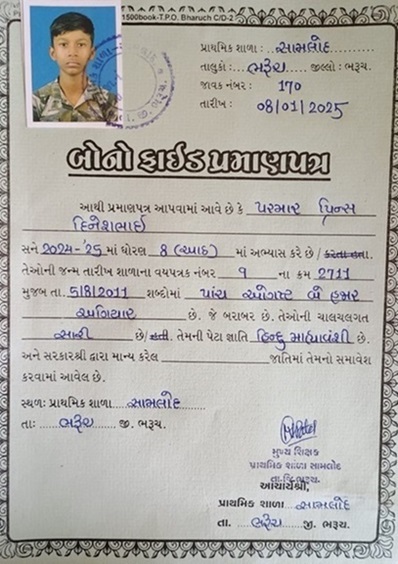 1500book-T.P.O. Bharuch C/D-2
પ્રાથમિક શાળા : સામલોદ
તાલુકો : ભરૂચ જીલ્લો : ભરૂચ.
જાવક નંબર : 170
તારીખ : 08/01/2025
બોનોફાઈડ પ્રમાણપત્ર
આથી પ્રમાણપત્ર આપવામાં આવે છે કે પરમાર પ્રિન્સ
દિનેશભાઈ
સને 2024-'25 માં ધોરણ 8 (આઠ) માં અભ્યાસ કરે છે / કરતા હતા.
તેઓની જન્મ તારીખ શાળાના વયપત્રક નંબર 9 ના ક્રમ 2711
મુજબ તા. 5/8/2011 શબ્દોમાં પાંચ ઓગષ્ટ બે હજાર
અગિયાર છે. જે બરાબર છે. તેઓની ચાલચલગત
સારી છે/હતી. તેમની પેટા જ્ઞાતિ હિન્દુ માહ્યાવંશી છે.
અને સરકારશ્રી દ્વારા માન્ય કરેલ જાતિમાં તેમનો સમાવેશ
કરવામાં આવેલ છે.
સ્થળ: પ્રાથમિક શાળા સામલોદ
તા: ભરૂચ જી. ભરૂચ.
મુખ્ય શિક્ષક
પ્રાથમિક શાળા સામલોદ
તા.જિ.ભરૂચ.
આચાર્યશ્રી,
પ્રાથમિક શાળા સામલોદ
તા. ભરૂચ જી. ભરૂચ.